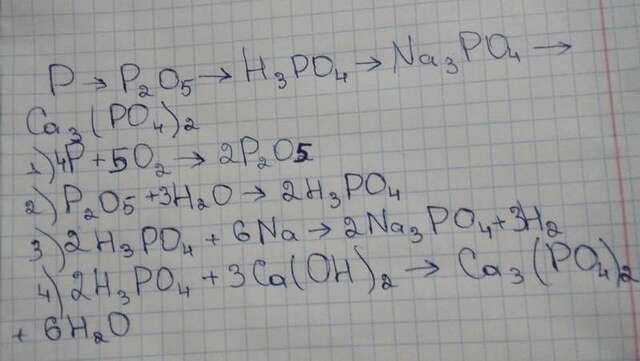 P → P₂O₅ → H₃PO₄ → Na₃PO₄ →
Ca₃(PO₄)₂
1) 4P + 5O₂ → 2P₂O5
2) P₂O₅ + 3H₂O → 2H₃PO₄
3) 2H₃PO₄ + 6Na → 2Na₃PO₄ + 3H₂
4) 2H₃PO₄ + 3Ca(OH)₂ → Ca₃(PO₄)₂
+ 6H₂O